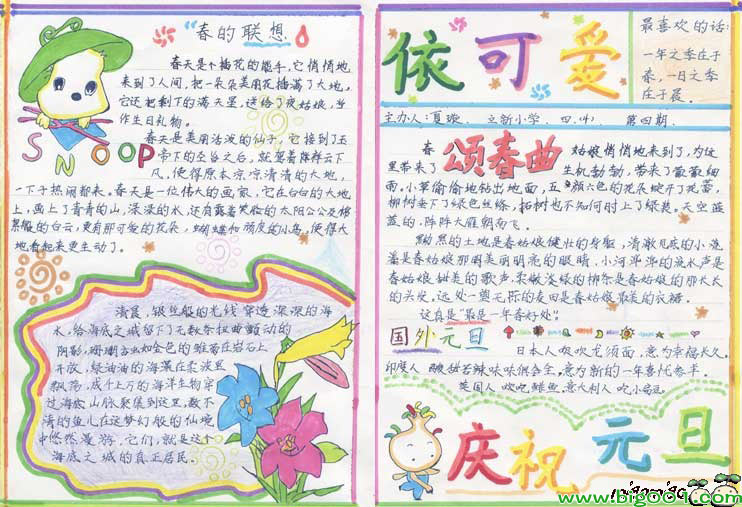 "春的联想"
春天是个插花的能手,它悄悄地
来到了人间,把一朵朵美丽花插满了大地。
它还把剩下的满天星,送给了夜姑娘,当
作生日礼物。
春天是美丽活泼的仙子,它接到玉
帝下的圣旨之后,就驾着降祥云下
凡,使得原来凉凉清清的大地,
一下子热闹起来。春天是一位伟大的画家,它在白白的大地
上,画上了青青的山,深深的水,还有露着笑脸的太阳公公及
的白云,更有那可爱的花朵,蝴蝶和顽皮的小鸟,使得大
地看起来更生动了。
SNOOP
清晨,银丝般的光线穿透深深的海
水,给海底之城留下了无数条扭曲颤动的
阴影,珊瑚虫如金色的雏菊在岩石上
开放,绿油油的海藻在柔波里
飘荡,成千上万的海洋生物穿
过海底山脉聚集到这里,数不
清的鱼儿在这梦幻般的仙境
中悠然漫游,它们,就是这个
海底之城的真正居民。
依可爱
最喜欢的话:
一年之季在于
春,一日之季
在于晨。
主办人:夏璇、立新小学、四、第四期、
颂春曲
春姑娘悄悄地来到了,为这
里带来了生机勃勃,带来了微微细
雨。小草偷偷地钻出地面,五颜六色的花朵绽开了花蕾,
柳树垂下了绿色丝绦,柘树也不知何时上了绿装。天空蓝
蓝的,阵阵大雁朝南飞。
黝黑的土地是春姑娘健壮的身躯,清澈见底的小流
潘是春姑娘那明美丽明亮的眼睛,小河潺潺的流水声是
春姑娘甜美的歌声,柔嫩淡绿的柳条是春姑娘的那长长
的头发,远处一望无际的麦田是春姑娘最美的衣裙。
这真是"最是一年春好处"!
国外元旦
日本人吸吹龙须面,意为幸福长久、
印度人甜苦辣味味俱会全,意为新的一年喜忧参半。
英国人欢吃鲱鱼、意大利人吃小扁豆。
庆祝元旦
www.bigoo1.com